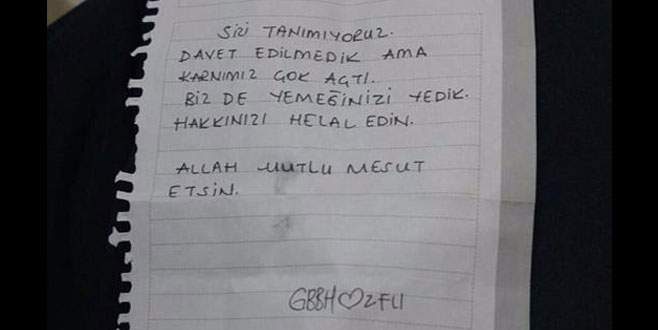 SİZİ TANIMIYORUZ.
DAVET EDİLMEDİK AMA
KARNIMIZ ÇOK AÇTI.
BİZ DE YEMEĞİNİZİ YEDİK.
HAKKINIZI HELAL EDİN.
ALLAH MUTLU MESUT
ETSİN.